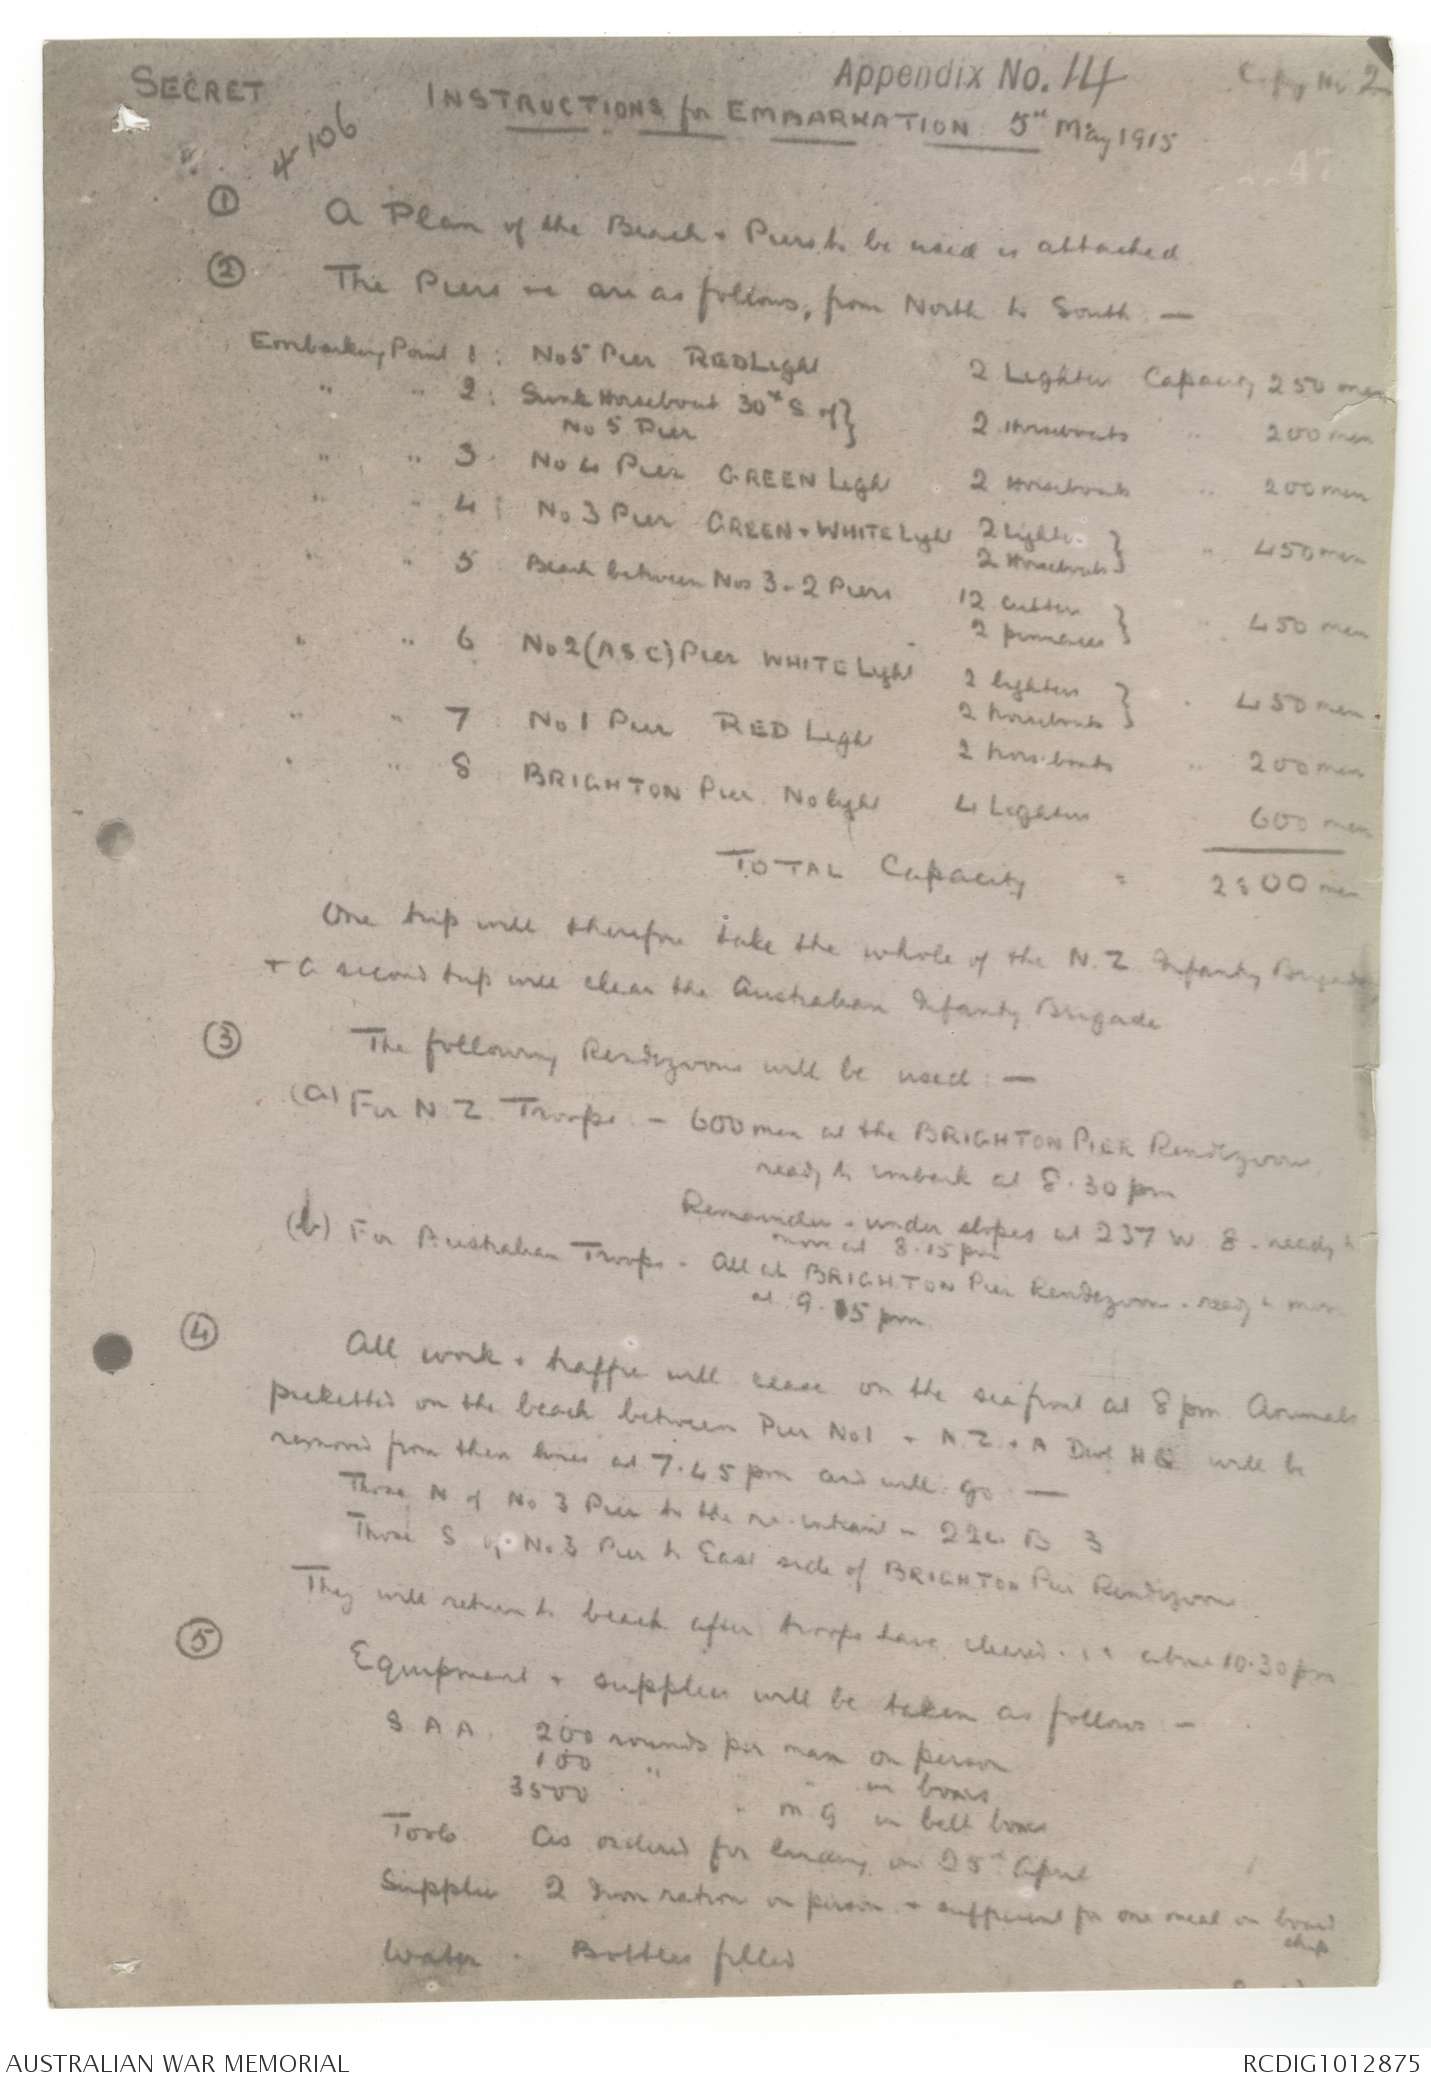 SECRET
Appendix No. 14
Copy No 2
INSTRUCTIONS for EMBARKATION 5th May 1915
4-106
47
① A Plan of the Beach + Piers to be used is attached
② The Piers are as follows, from North to South:—
Embarking Point 1: No 5 Pier RED Light 2 Lighters Capacity 250 men
" " 2: Sunk Horseboat 30x S of } 2 Horseboats " 200 men
No 5 Pier
" " 3 No 4 Pier GREEN Light 2 Horseboats " 200 men
" " 4: No 3 Pier GREEN + WHITE Light 2 Lighters }
2 Horseboats } " 450 men
" " 5 Beach between Nos 3 - 2 Piers 12 cutters }
2 pinnaces } " 450 men
" " 6 No 2 (ASC) Pier WHITE Light 2 lighters }
2 horseboats } " 450 men.
" " 7 No 1 Pier RED Light 2 horseboats " 200 men
" " 8 BRIGHTON Pier No light 4 Lighters 600 men
TOTAL Capacity = 2800 men
One trip will therefore take the whole of the N.Z. Infantry Brigade
+ a second trip will clear the Australian Infantry Brigade
③ The following Rendezvous will be used:—
(a) For N.Z. Troops. — 600 men at the BRIGHTON PIER Rendezvous
ready to embark at 8.30 pm
Remainder - under slopes at 237 W 8 - ready to
move at 8.15 pm
(b) For Australian Troops - All at BRIGHTON Pier Rendezvous - ready to move
at 9.15 pm
④ All work + traffic will cease on the sea front at 8 pm Animals
picketted on the beach between Pier No 1 + N.Z. + A Divl HQ will be
removed from their lines at 7.45 pm and will go:—
Those N of No 3 Pier to the re-entrant in 224 B 3
Those S of No. 3 Pier to East side of BRIGHTON Pier Rendezvous
They will return to beach after troops have cleared - i.e about 10.30 pm
⑤ Equipment + supplies will be taken as follows:—
S A A. 200 rounds per man on person
100 " " " in boxes
3500 " M G in belt boxes
Tools As ordered for landing on 25th April
Supplies 2 Iron ration on person + sufficient for one meal on board
ship
Water - Bottles filled
AUSTRALIAN WAR MEMORIAL
RCDIG1012875